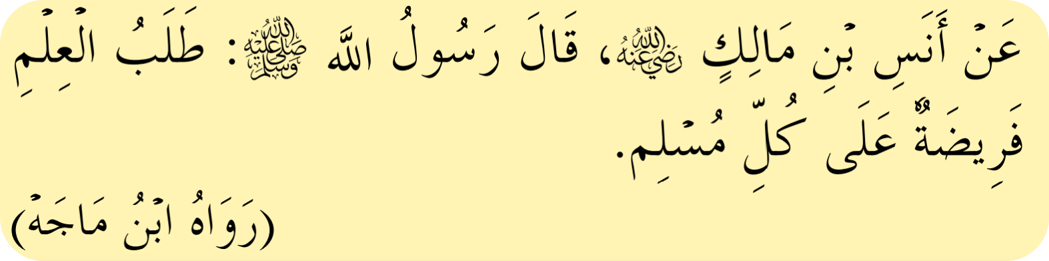 عَنْ أَنَسِ بْنِ مَالِكٍ رضي الله عنه، قَالَ رَسُولُ اللَّه ﷺ: طَلَبُ الْعِلْمِ
فَرِيضَةٌ عَلَى كُلِّ مُسْلِمٍ.
(رَوَاهُ ابْنُ مَاجَهْ)